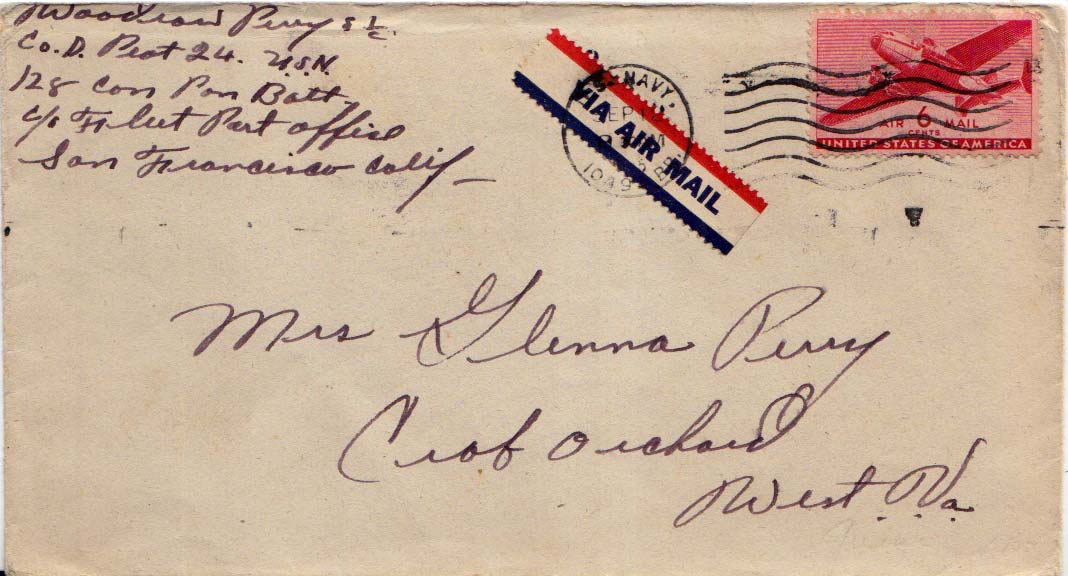 Woodrow Perry S 1/c.
Co. D. Plat 24. U.S.N.
128 Con Pon Batt.
c/o Fleet Post office
San Francisco Calif
NAVY.
SEP
VIA AIR MAIL
AIR 6 MAIL
CENTS
UNITED STATES OF AMERICA
Mrs Glenna Perry
Crab Orchard
West. Va.